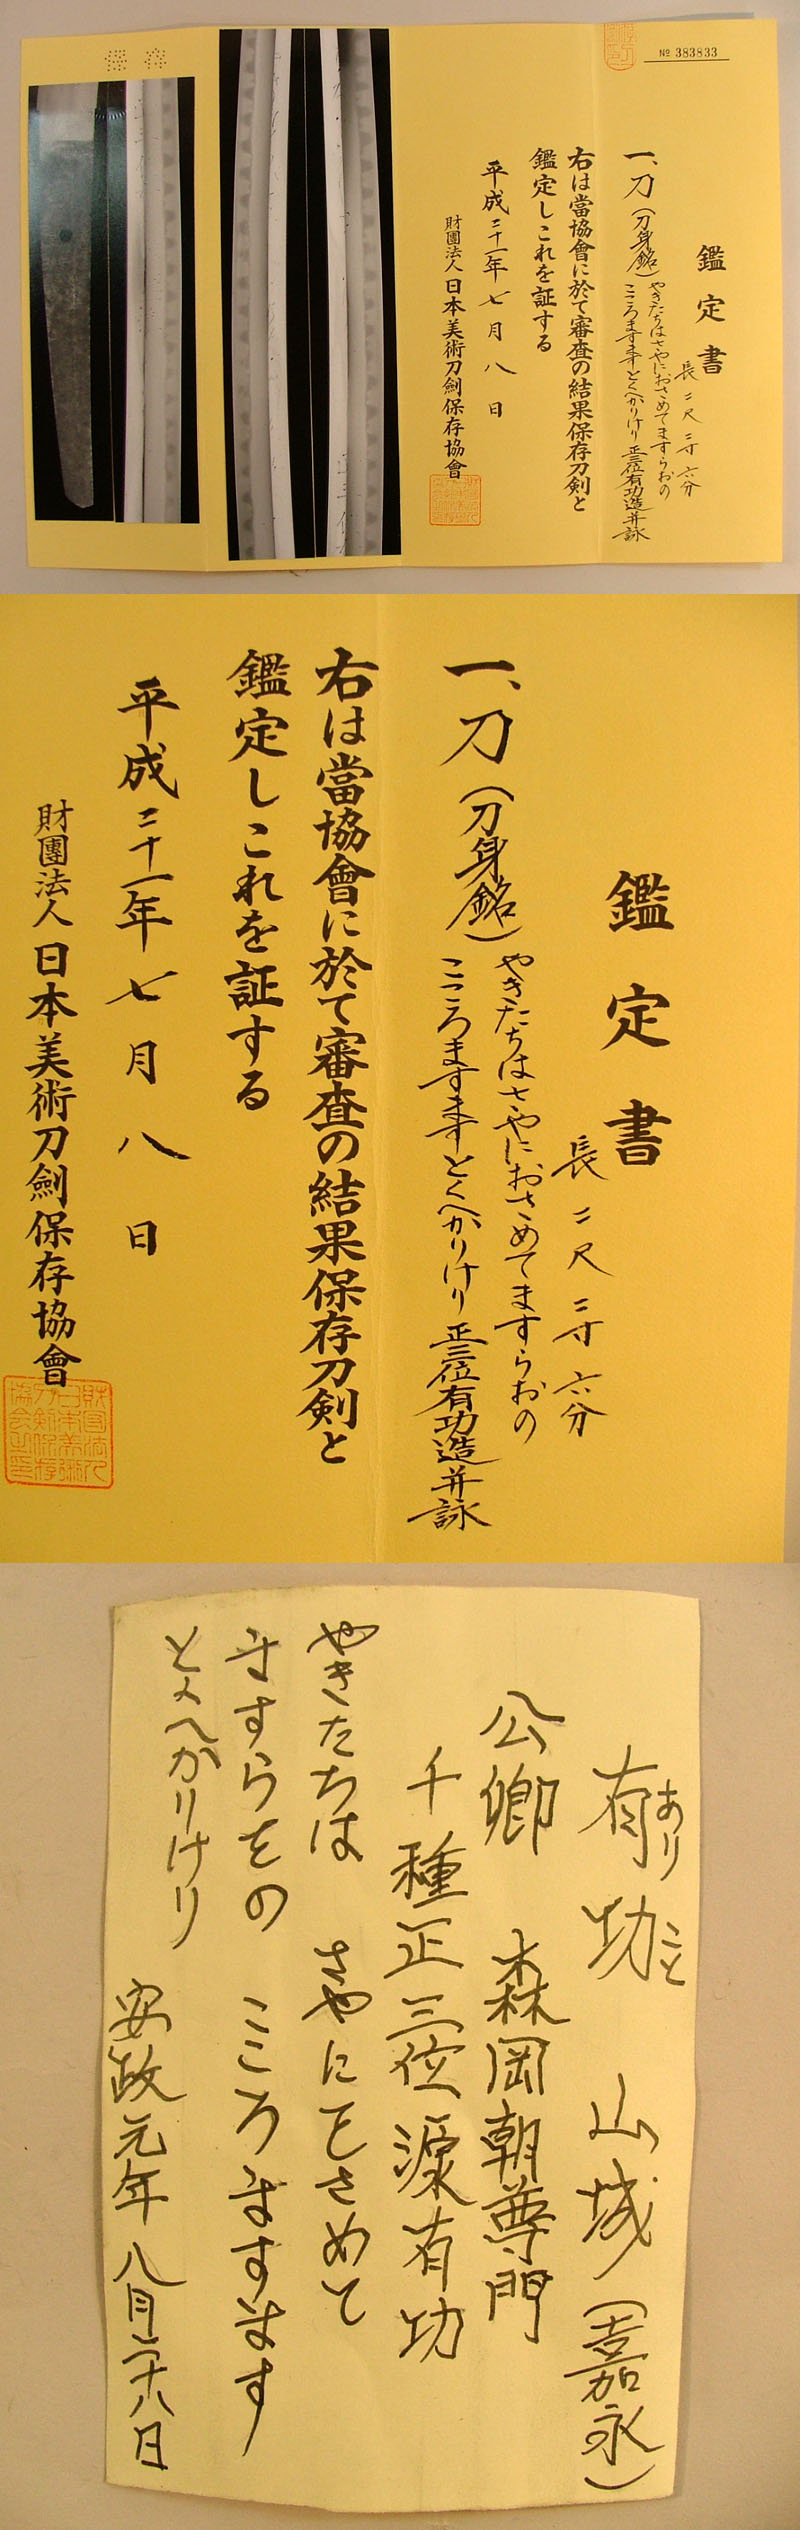 № 383833
鑑定書
長二尺二寸六分
一、刀(刀身銘)
やきたちはさやにおさめてますらおの
こころますますとくへかりけり 正三位有功造并詠
右は當協會に於て審査の結果保存刀剣と
鑑定しこれを証する
平成二十一年七月八日
財團法人日本美術刀劍保存協會
鑑定書
長二尺二寸六分
一、刀(刀身銘)
やきたちはさやにおさめてますらおの
こころますますとくへかりけり 正三位有功造并詠
右は當協會に於て審査の結果保存刀剣と
鑑定しこれを証する
平成二十一年七月八日
財團法人日本美術刀劍保存協會
有功 山城(嘉永)
ありこと
公卿 森岡朝尊門
千種正三位源有功
やきたちは さやにをさめて
ますらをの こころますます
とくへかりけり 安政元年八月二十八日